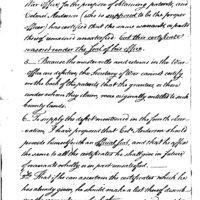 War office for the purpose of obtaining patents, and
Colonel Anderson (who is supposed to be the proper
officer) has certified that the same warrants, or parts
thereof remained unsatisfied, but this certificate
is not under the Seal of his office.
5. Because the muster rolls and returns in the War
office are defective, the Secretary of War cannot certify
on the back of the patents that the grantees, or those
under whom they claim, were originally entitled to such
bounty lands.
6. To supply the defect mentioned in the fourth obser-
vation, I have proposed that Col. Anderson should
provide himself with an official Seal, and that he affix
the same to all the certificates he shall give in future
of warrants wholly or in part unsatisfied
That if he can ascertain the certificates which he
has already given, he should make a list thereof